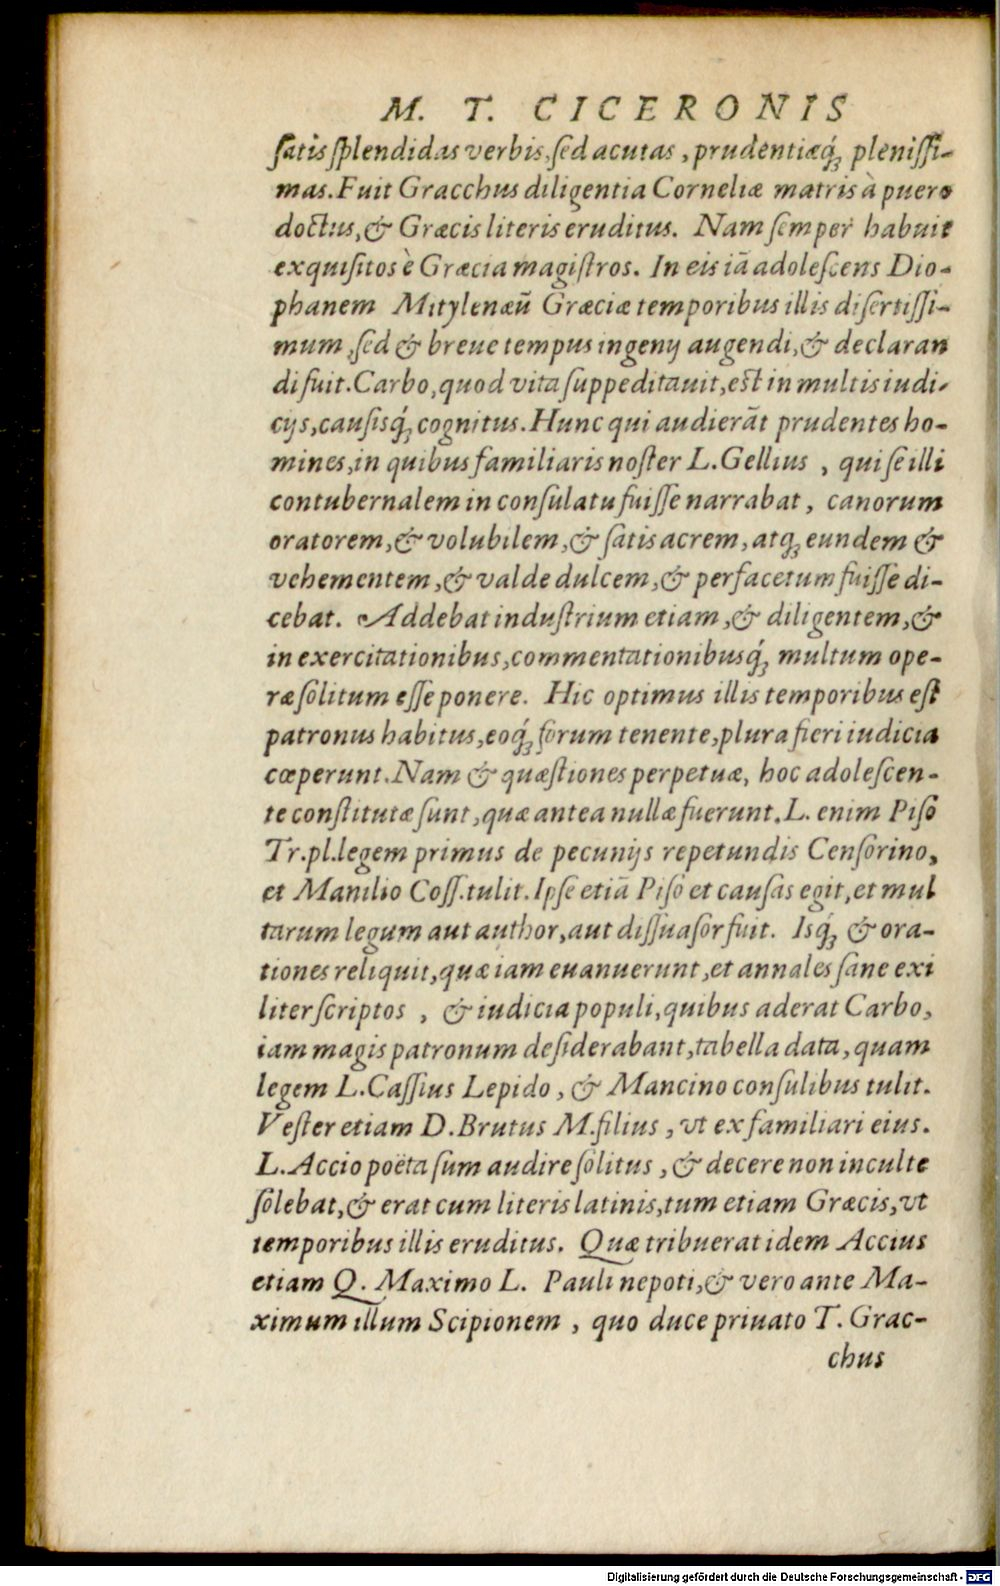 M. T. CICERONIS
ſatis ſplendidas verbis, ſed acutas, prudentiæq́ꝫ pleniſſi-
mas. Fuit Gracchus diligentia Corneliæ matris à puero
doctus, & Græcis literis eruditus. Nam ſemper habuit
exquiſitos è Græcia magiſtros. In eis iã adoleſcens Dio-
phanem Mitylenæũ Græciæ temporibus illis diſertiſſi-
mum, ſed & breue tempus ingenij augendi, & declaran
di fuit. Carbo, quod vita ſuppeditauit, eſt in multis iudi-
cijs, cauſisq́ꝫ cognitus. Hunc qui audierãt prudentes ho-
mines, in quibus familiaris noſter L. Gellius, qui ſe illi
contubernalem in conſulatu fuiſſe narrabat, canorum
oratorem, & volubilem, & ſatis acrem, atqꝫ eundem &
vehementem, & valde dulcem, & perfacetum fuiſſe di-
cebat. Addebat induſtrium etiam, & diligentem, &
in exercitationibus, commentationibusq́ꝫ multum ope-
ræ ſolitum eſſe ponere. Hic optimus illis temporibus eſt
patronus habitus, eoq́ꝫ forum tenente, plura fieri iudicia
cœperunt. Nam & quæſtiones perpetuæ, hoc adoleſcen-
te conſtitutæ ſunt, quæ antea nullæ fuerunt. L. enim Piſo
Tr. pl. legem primus de pecunijs repetundis Cenſorino,
et Manilio Coſſ. tulit. Ipſe etiã Piſo et cauſas egit, et mul
tarum legum aut author, aut diſſuaſor fuit. Isq́ꝫ & ora-
tiones reliquit, quæ iam euanuerunt, et annales ſane exi
liter ſcriptos, & iudicia populi, quibus aderat Carbo,
iam magis patronum deſiderabant, tabella data, quam
legem L. Caſſius Lepido, & Mancino conſulibus tulit.
Veſter etiam D. Brutus M. filius, vt ex familiari eius.
L. Accio poëta ſum audire ſolitus, & decere non inculte
ſolebat, & erat cum literis latinis, tum etiam Græcis, vt
temporibus illis eruditus. Quæ tribuerat idem Accius
etiam Q. Maximo L. Pauli nepoti, & vero ante Ma-
ximum illum Scipionem, quo duce priuato T. Grac-
chus
Digitalisierung gefördert durch die Deutsche Forschungsgemeinschaft - DFG